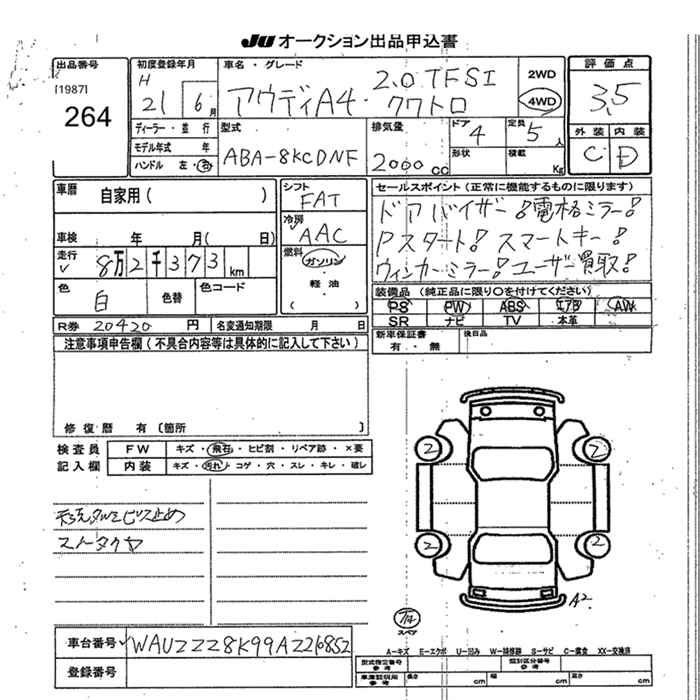 JU オークション出品申込書
出品番号
[1987]
264
初度登録年月
H 21 6月
車名・グレード
アウディA4・ 2.0 TFSI クワトロ
2WD
4WD
評価点
3.5
外装 内装
C D
ディーラー・並行
モデル年式 年
ハンドル 左・右
型式
ABA-8KCDNF
排気量
2000cc
ドア 4
形状
定員 5人
積載 Kg
車歴 自家用( )
車検 年 月( 日)
走行 8万2千373km
色 白 色替 色コード
シフト
FAT
冷房
AAC
燃料
ガソリン
・
軽油
( )
セールスポイント(正常に機能するものに限ります)
ドアバイザー!電格ミラー!
Pスタート!スマートキー!
ウィンカーミラー!ユーザー買取!
装備品(純正品に限り○を付けてください)
PS PW ABS エアB AW
SR ナビ TV 本革
R券 20420円 名変通知期限 月 日
新車保証書 有・無
後日品
注意事項申告欄(不具合内容等は具体的に記入して下さい)
修復歴 有〔箇所 〕
検査員 FW キズ・飛石・ヒビ割・リペア跡・×要
記入欄 内装 キズ・汚れ・コゲ・穴・スレ・キレ・破レ
ビス止め
2 2
2 2
A2
スペア
A-キズ E-エクボ U-凹み W-補修跡 S-サビ C-腐食 XX-交換済
車台番号 WAUZZZ8K99A221
登録番号
型式指定番号 参考
類別区分番号 参考
車庫証明用 参考
長さ cm 幅 cm 高さ cm